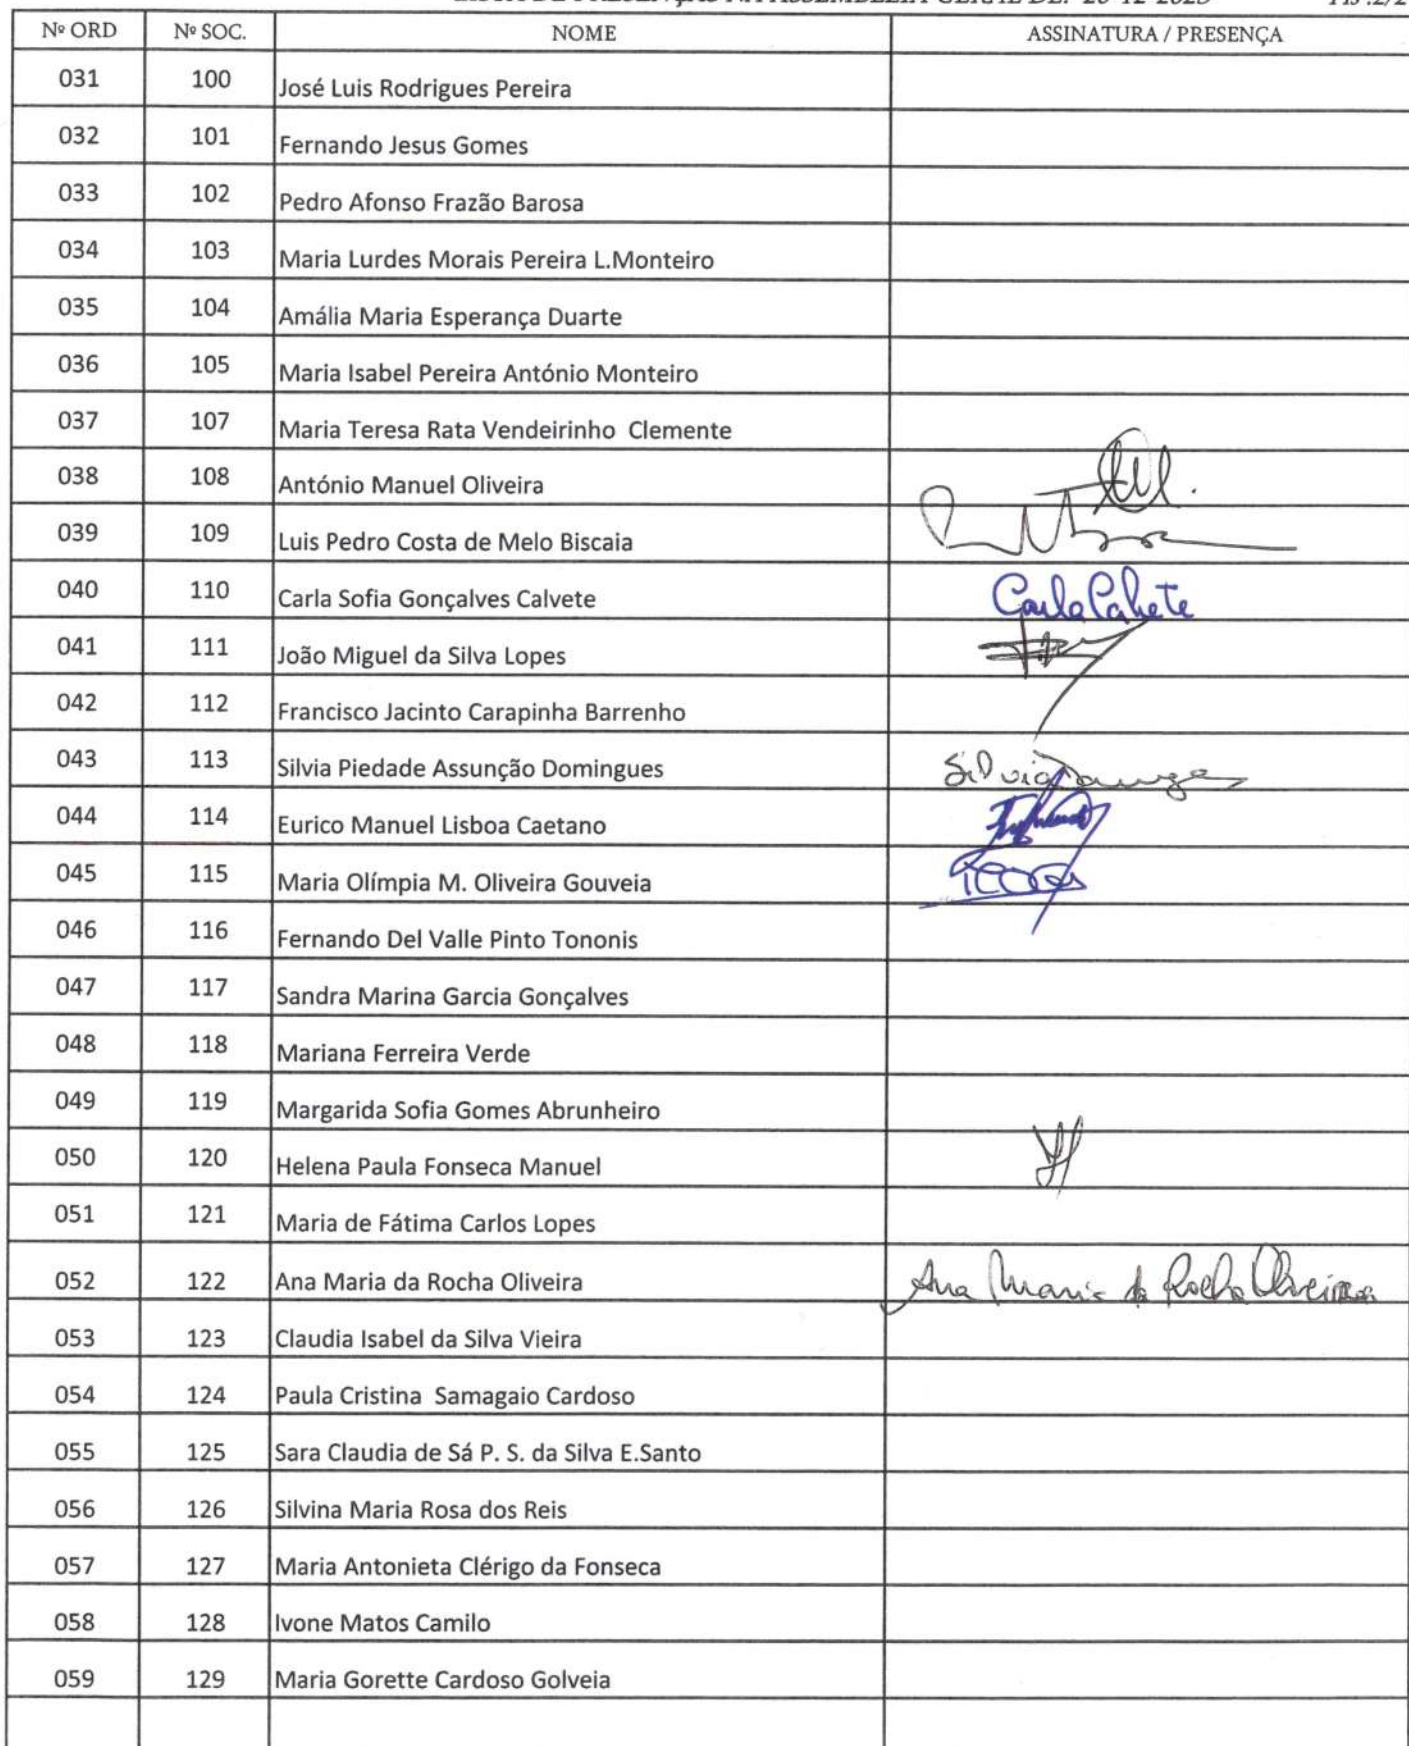 LISTA DE PRESENÇAS NA ASSEMBLEIA GERAL DE:
Nº ORD Nº SOC. NOME ASSINATURA / PRESENÇA
031 100 José Luis Rodrigues Pereira
032 101 Fernando Jesus Gomes
033 102 Pedro Afonso Frazão Barosa
034 103 Maria Lurdes Morais Pereira L.Monteiro
035 104 Amália Maria Esperança Duarte
036 105 Maria Isabel Pereira António Monteiro
037 107 Maria Teresa Rata Vendeirinho Clemente
038 108 António Manuel Oliveira
039 109 Luis Pedro Costa de Melo Biscaia
040 110 Carla Sofia Gonçalves Calvete Carla Calvete
041 111 João Miguel da Silva Lopes
042 112 Francisco Jacinto Carapinha Barrenho
043 113 Silvia Piedade Assunção Domingues Silvia
044 114 Eurico Manuel Lisboa Caetano
045 115 Maria Olímpia M. Oliveira Gouveia
046 116 Fernando Del Valle Pinto Tononis
047 117 Sandra Marina Garcia Gonçalves
048 118 Mariana Ferreira Verde
049 119 Margarida Sofia Gomes Abrunheiro
050 120 Helena Paula Fonseca Manuel
051 121 Maria de Fátima Carlos Lopes
052 122 Ana Maria da Rocha Oliveira Ana Maria da Rocha Oliveira
053 123 Claudia Isabel da Silva Vieira
054 124 Paula Cristina Samagaio Cardoso
055 125 Sara Claudia de Sá P. S. da Silva E.Santo
056 126 Silvina Maria Rosa dos Reis
057 127 Maria Antonieta Clérigo da Fonseca
058 128 Ivone Matos Camilo
059 129 Maria Gorette Cardoso Golveia